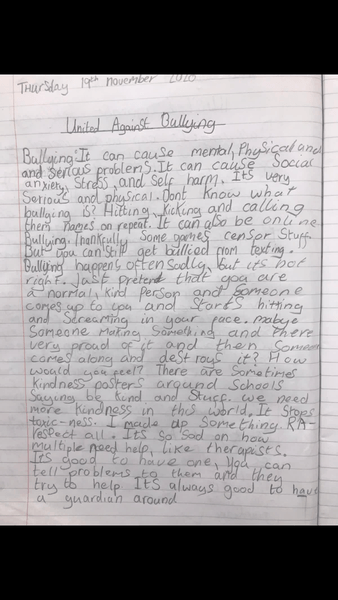 Thursday 19th November 2020
United Against Bullying
Bullying: It can cause mental, Physical and
and serious problems. It can cause Social
anxiety, Stress, and Self harm. Its very
Serious and physical. Dont Know what
bullying is? Hitting, Kicking and calling
them names on repeat. It can also be online
Bullying. Thankfully Some games censor Stuff.
But you can still get bullied from texting.
Bullying happens often sadly, but its not
right. Just pretend that you are
a normal, kind person and someone
comes up to you and starts hitting
and Screaming in your face. mabye
Someone Making Something and there
very proud of it and then Someone
comes along and destroys it? How
would you feel? There are Sometimes
Kindness posters around Schools
Saying be Kind and Stuff. we need
more Kindness in this world. It Stops
toxic-ness. I made up Something RA-
respect all. Its so Sad on how
multiple need help, like therapists.
Its good to have one, You can
tell problems to them and they
try to help ITS always good to have
a guardian around